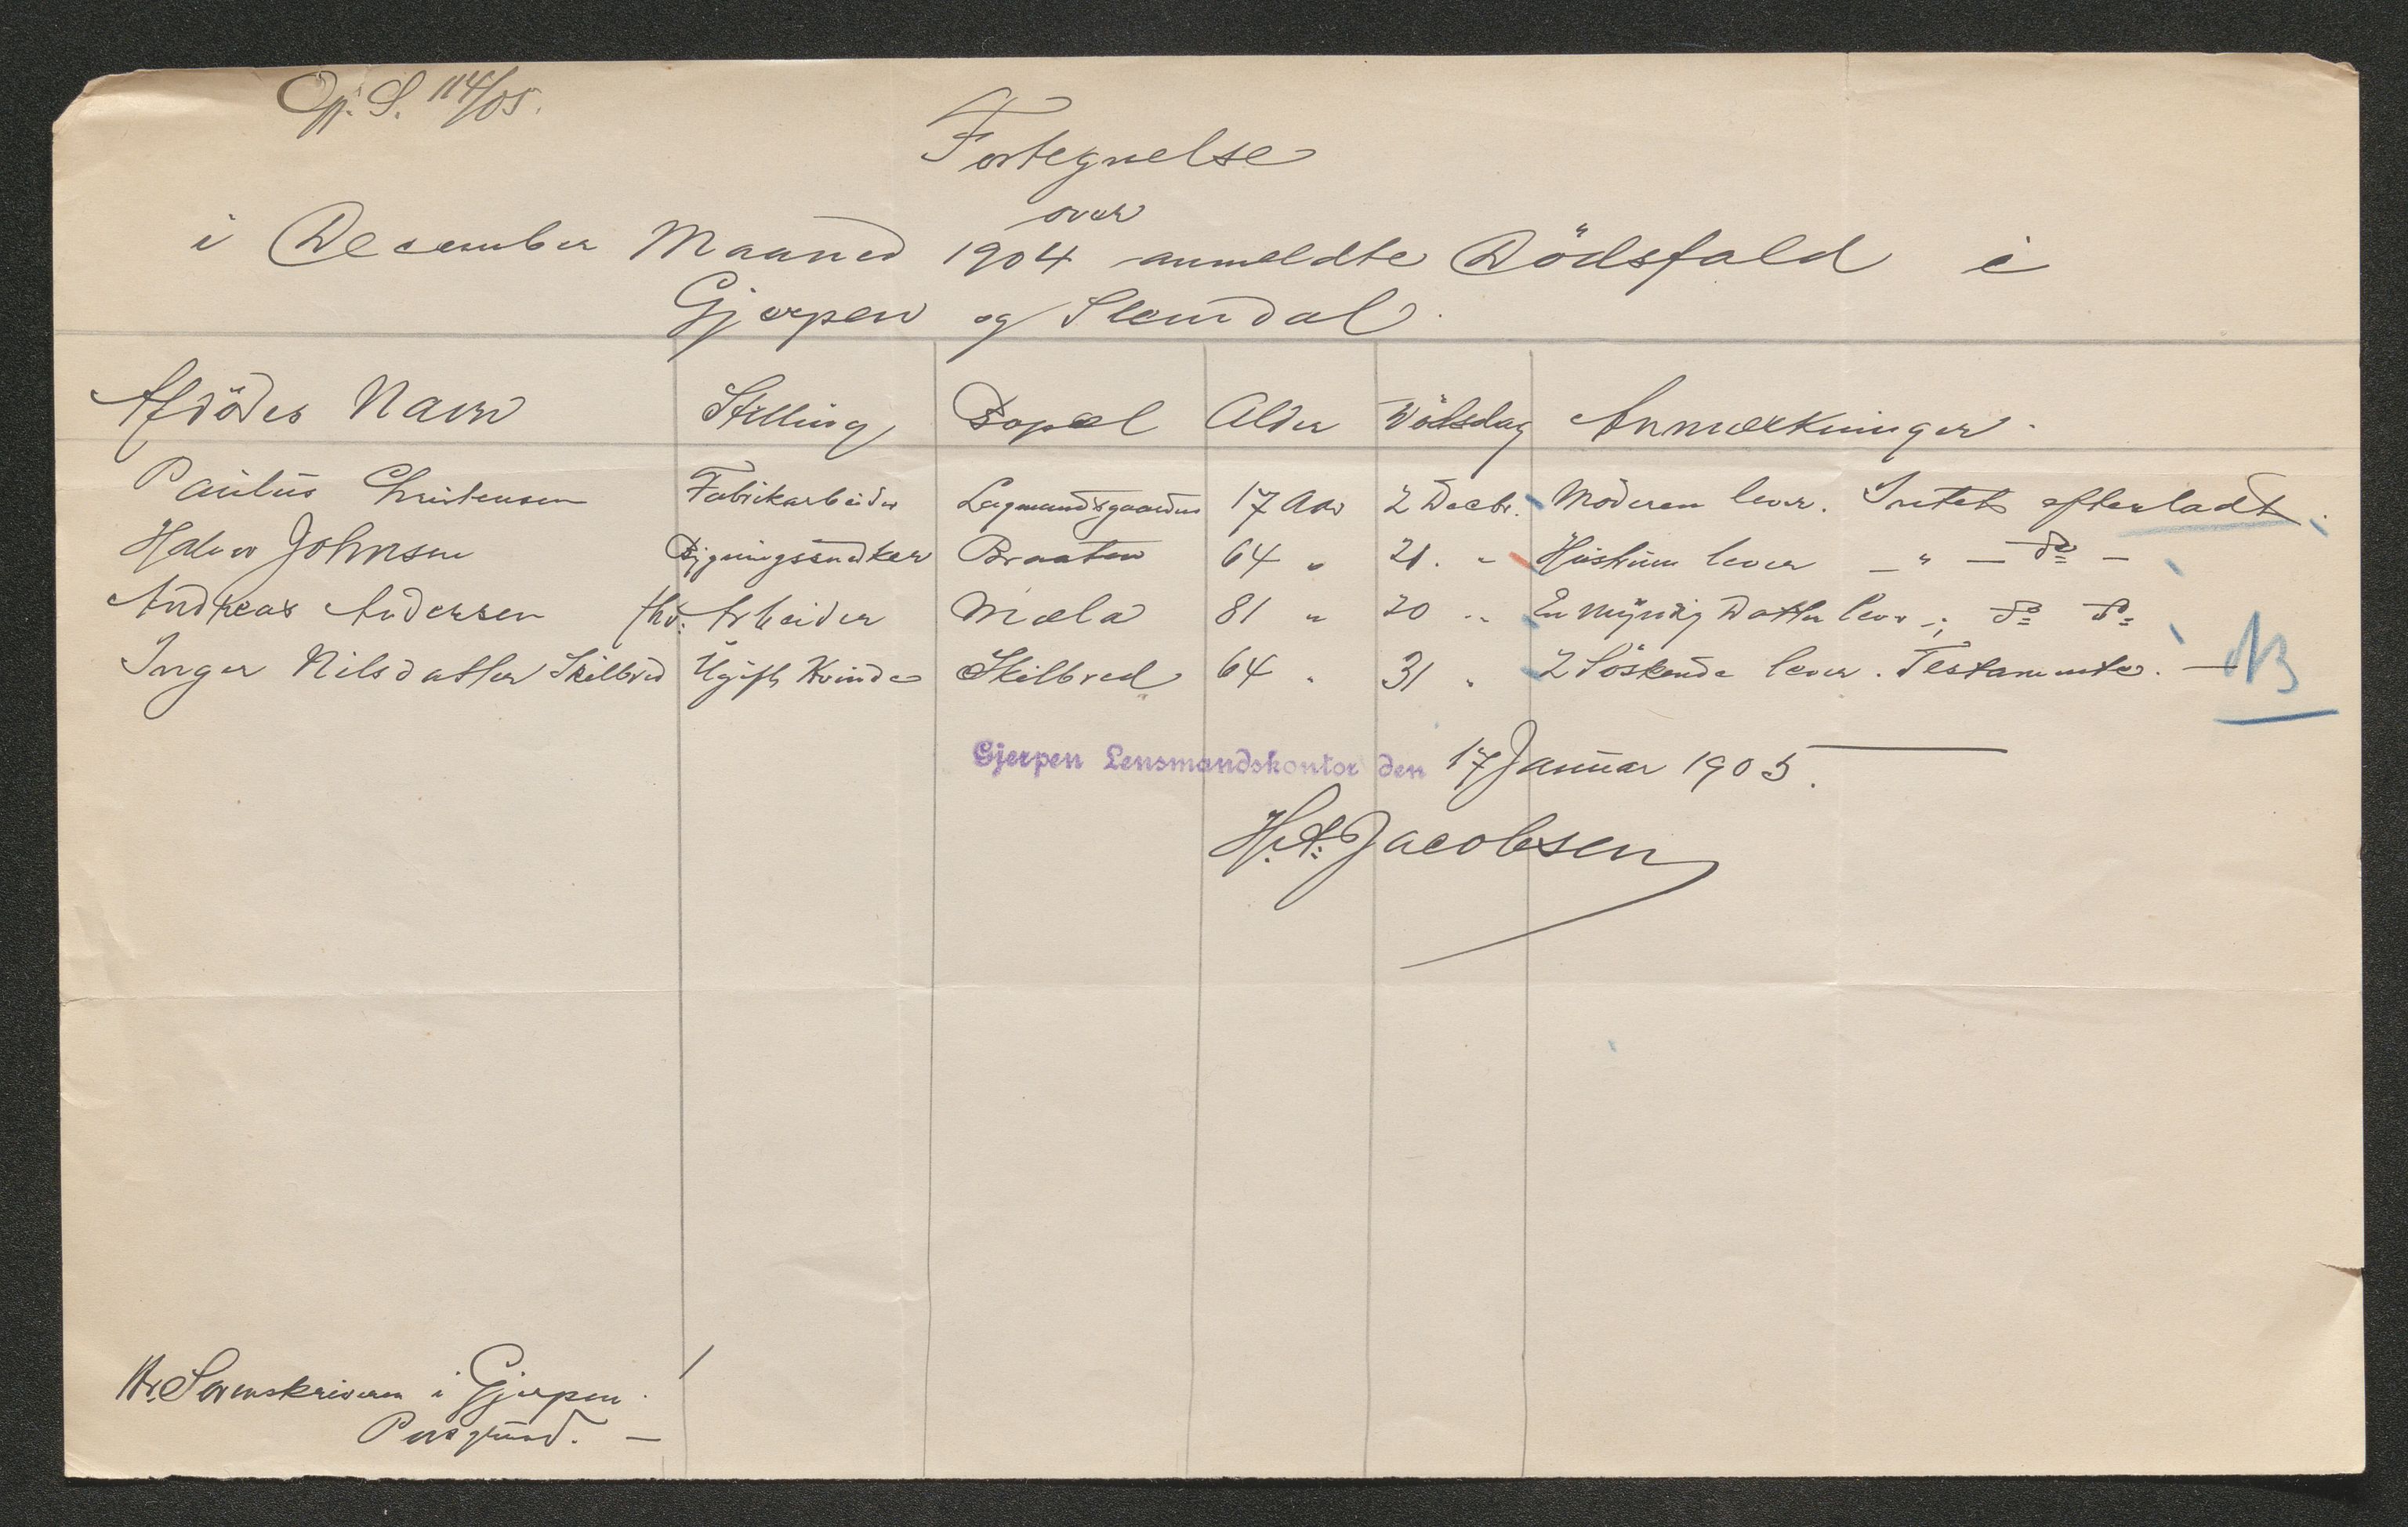 Opj. S. 114/05.
Fortegnelse
over
i December Maaned 1904 anmeldte Dödsfald i
Gjerpen og Slemdal.
Afdödes Navn Stilling Bopæl Alder Dödsdag Anmærkninger.
Paulus Christensen Fabrikarbeider Lagmandsgaarden 17 Aar 2 Decbr. Moderen lever. Intet efterladt.
Halvor Johnsen Bygningssnedker Braaten 64 " 21. " Hustru lever — " — do —
Andreas Andersen fhv. Arbeider Mæla 81 " 20 " En myndig Datter lever; do do
Inger Nilsdatter Skilbred Ugift Kvinde Skilbred 64 " 31 " 2 Söskende lever. Testamente. — NB
Gjerpen Lensmandskontor den 17 Januar 1905.
H. A. Jacobsen
Hr. Sorenskriveren i Gjerpen.
Porsgrund. —